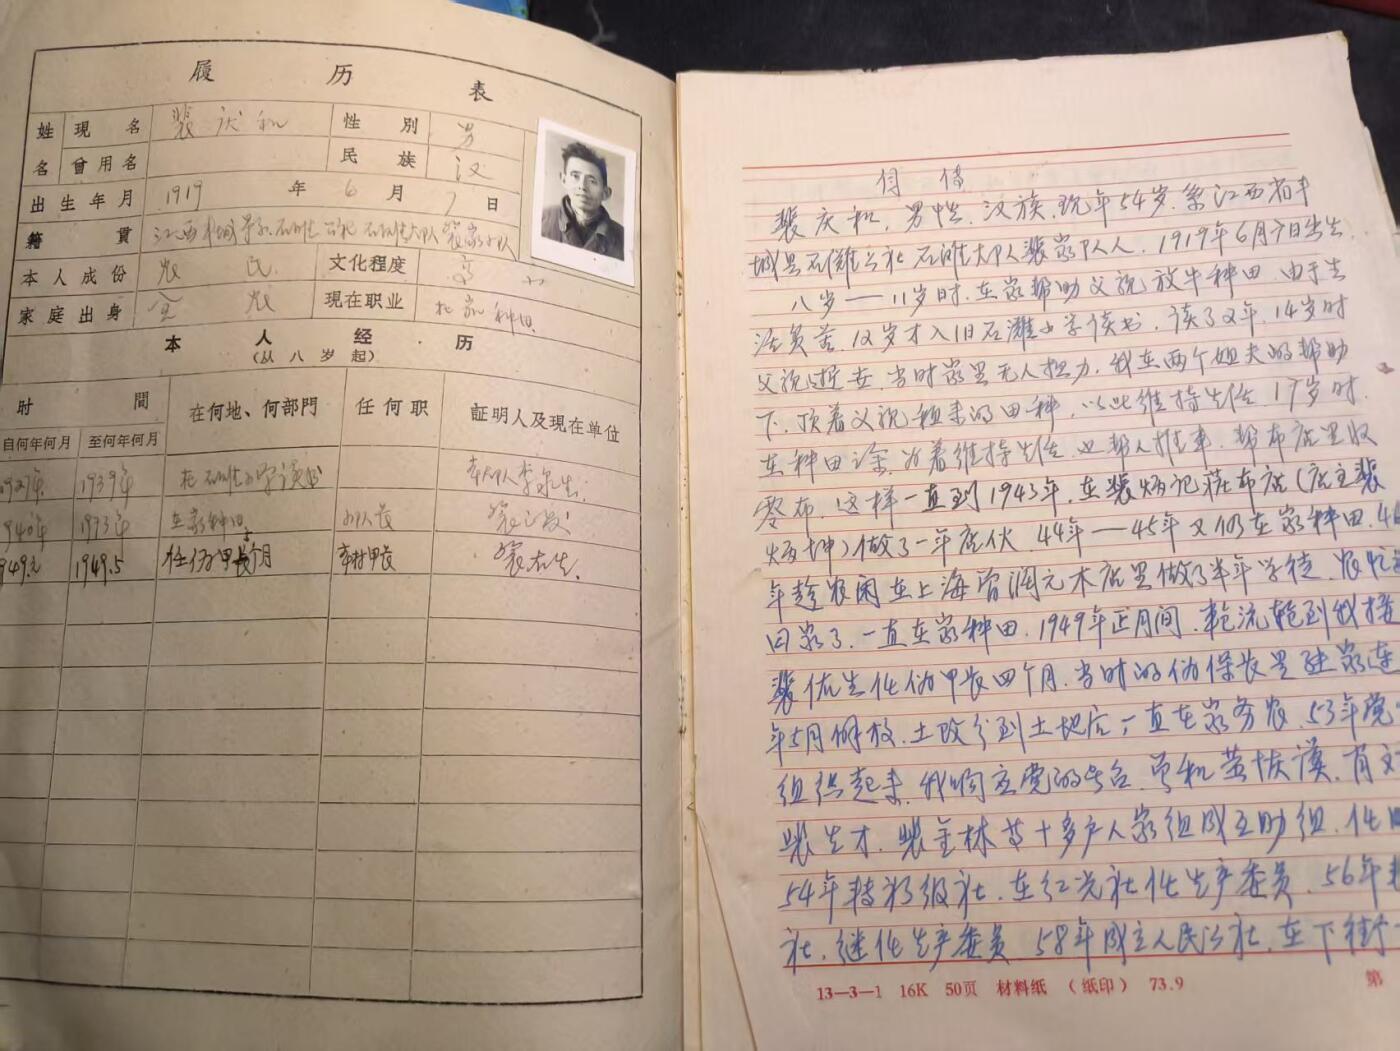 履 历 表
姓名 現名 裴庆和 性别 男
曾用名 民族 汉
出生年月 1919 年 6 月 7 日
籍貫 江西丰城县石滩公社石滩大队裴家小队
本人成份 农民 文化程度 高小
家庭出身 农 现在职业 在家种田
本人经历
(从八岁起)
时間 在何地、何部門 任何职 証明人及現在单位
自何年何月 至何年何月
1939年 在石滩小学读书 本大队李
1973年 在家种田
949.元 1949.5 任伪甲长个月 本村甲长 裴右生
自 传
裴庆和，男性，汉族，现年54岁，系江西省丰
城县石滩公社石滩大队裴家队人，1919年6月7日出生，
八岁——11岁时，在家帮助父亲放牛种田，由于生
活贫苦，12岁才入旧石滩小学读书，读了2年，14岁时
父亲逝世，当时家里无人担力，我在两个姐夫的帮助
下，顶着父亲租来的田种，以此维持生活，17岁时
在种田之余，为着维持生活，也帮人推车，帮布店里收
零布，这样一直到1943年，在裴炳记花布店（店主裴
炳坤）做了一年店伙，44年——45年又仍在家种田，46
年趁农闲在上海曾润元木店里做了半年学徒，农忙
回家了，一直在家种田，1949年正月间，轮流轮到我接
裴佑生任伪甲长四个月，当时的伪保长是
年5月解放，土改分到土地后，一直在家务农，53年党
组织起来，我响应党的号召，
裴生才，裴金林等十多户人家组成互助组，任
54年转初级社，在红光社任生产委员，56年
社，继任生产委员，58年成立人民公社，在下街
13—3—1 16K 50页 材料纸 （纸印） 73.9 第